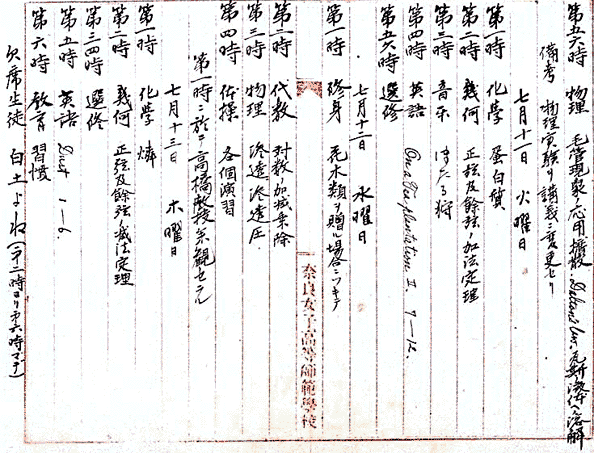 第五六時 物理 毛管現象ノ応用 擴散 Dalton's law. 瓦斯ノ液体ヘノ溶解
備考 物理実験ヲ講義ニ変更セリ
七月十一日 火曜日
第一時 化學 蛋白質
第二時 幾何 正弦及餘弦ノ加法定理
第三時 音楽 ほたる狩
第四時 英語 On a Tea plantation II. 7—12.
第五六時 選修
七月十二日 水曜日
第一時 修身 花木類ヲ贈ル場合ニツキテ
第二時 代数 対数ノ加減乗除
第三時 物理 滲透 滲透圧
第四時 体操 各個演習
第一時ニ於テ高橋教授参観セラル
七月十三日 木曜日
第一時 化學 燐
第二時 幾何 正弦及餘弦ノ減法定理
第三四時 選修
第五時 英語 1—6.
第六時 教育 習慣
欠席生徒 白土よね(第二時ヨリ第六時マデ)
奈良女子高等師範學校